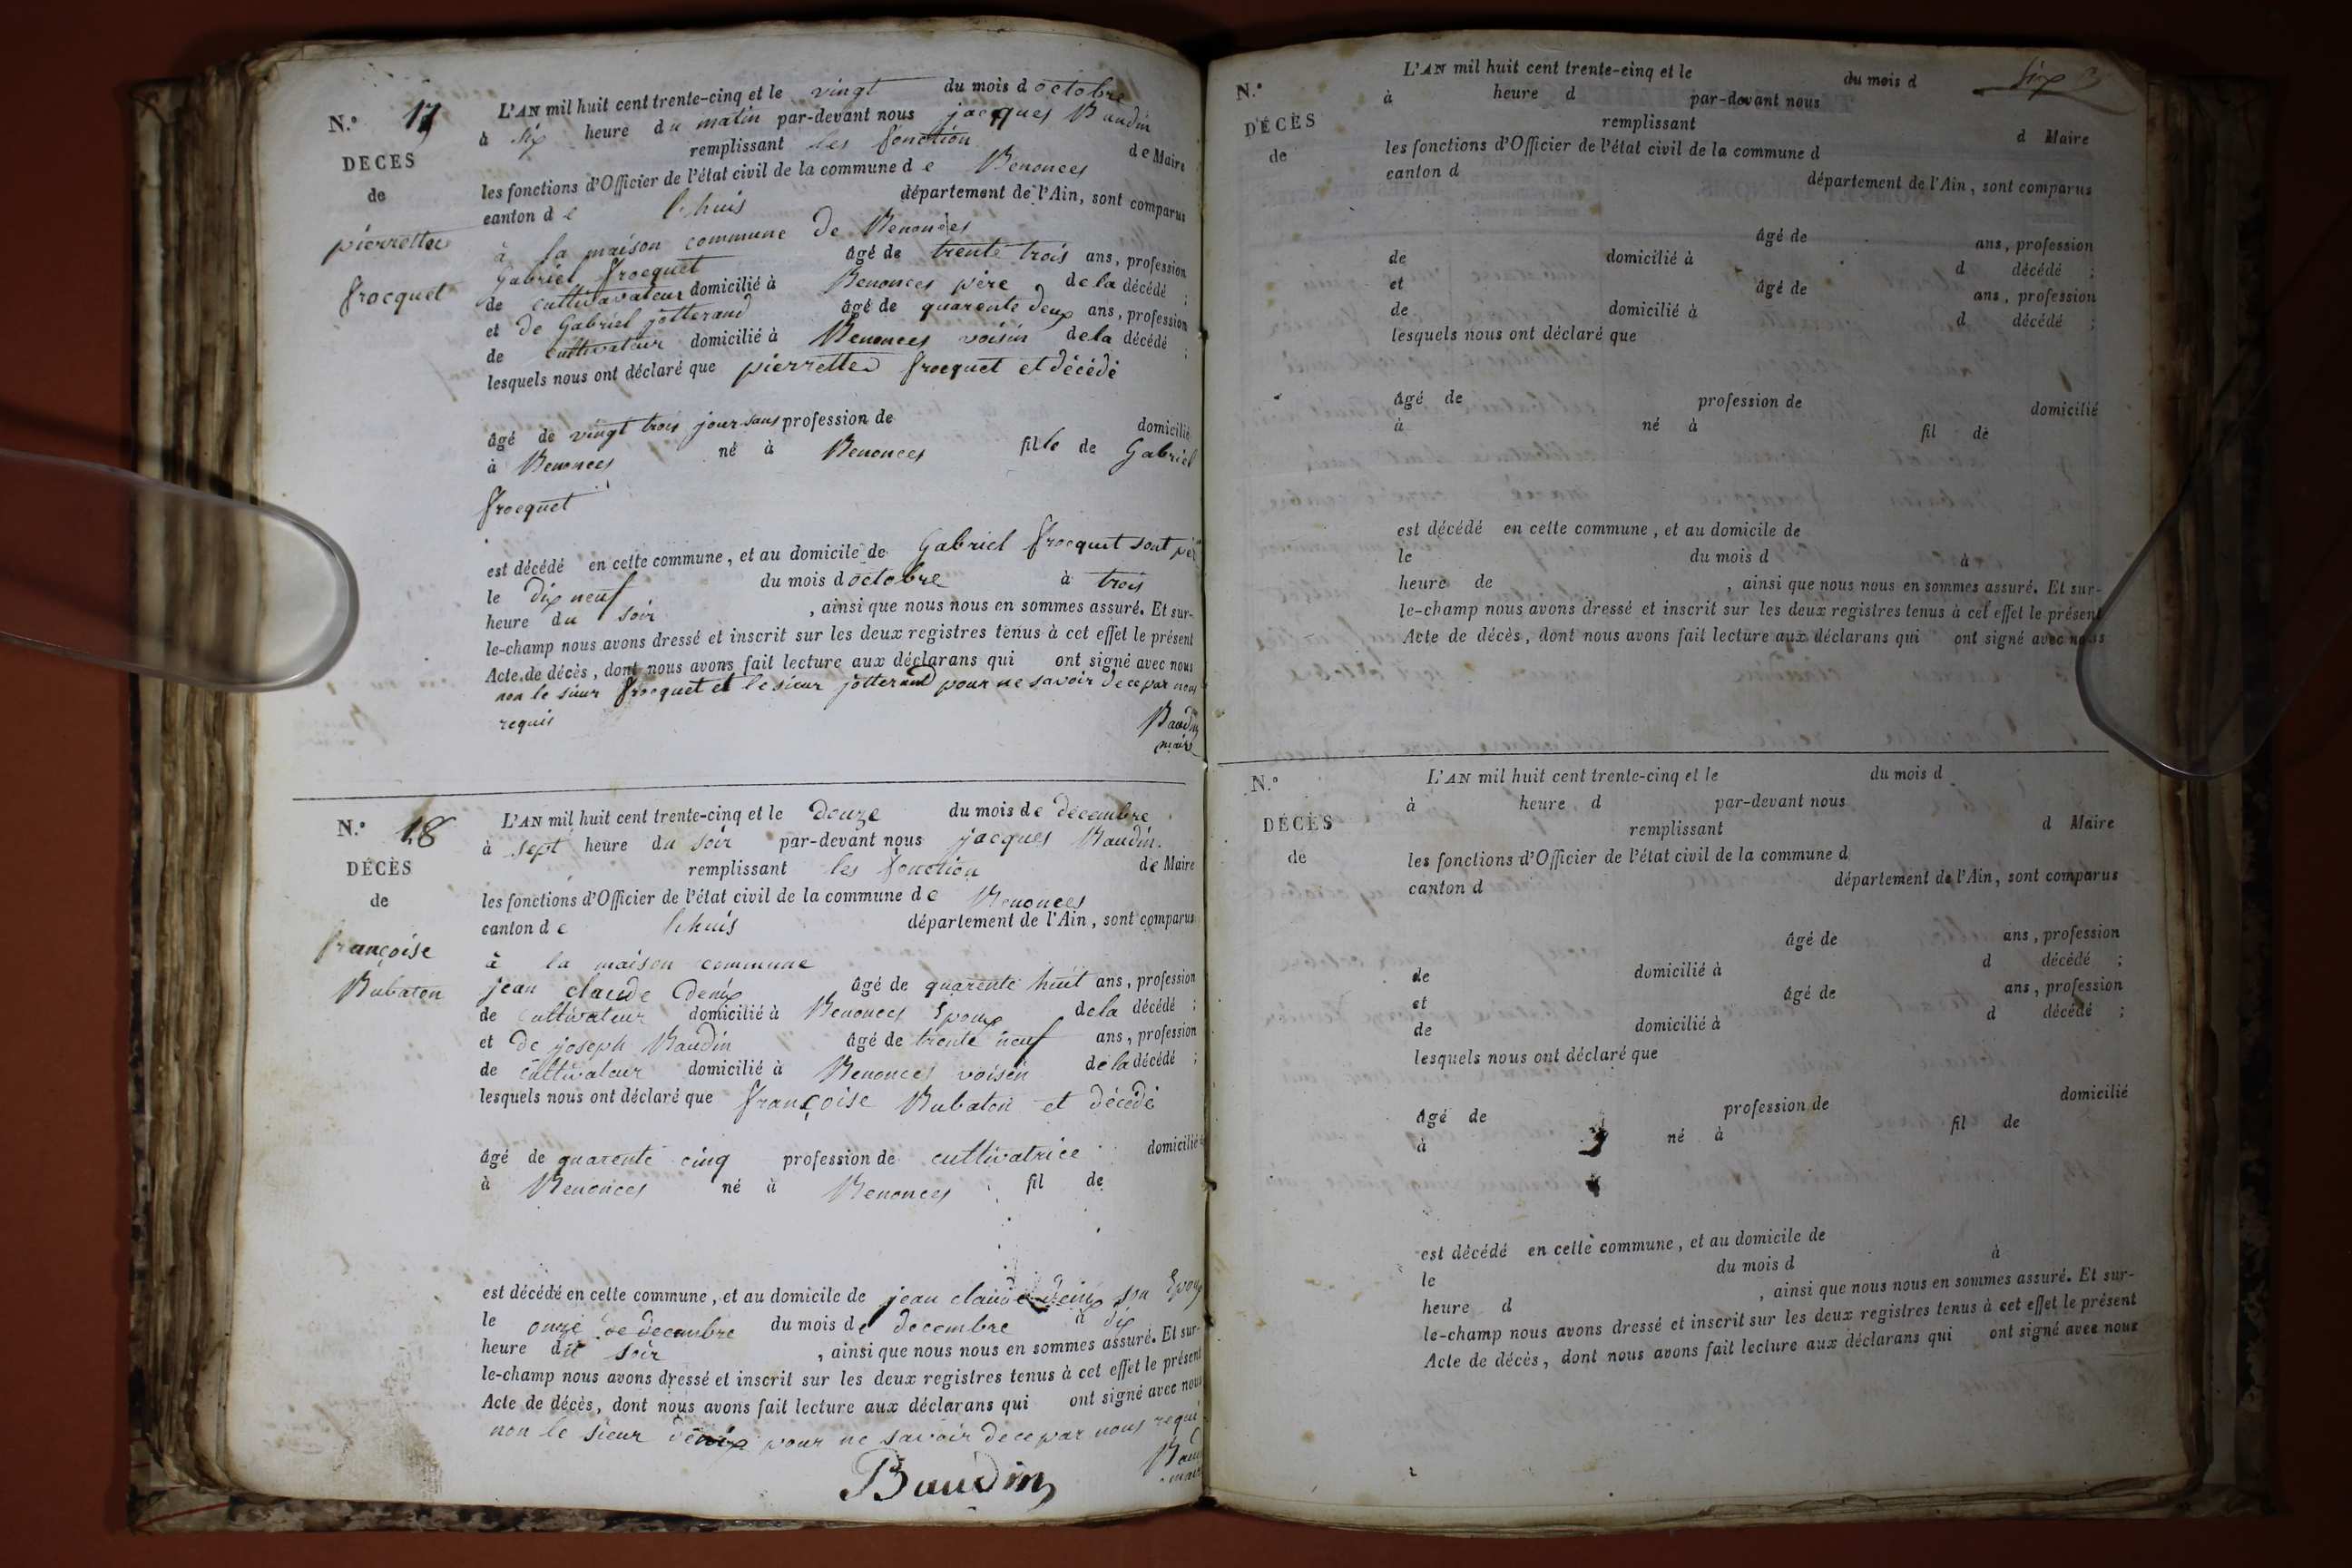 N.° 17
DECES
de
pierrette
frocquet
L'AN mil huit cent trente-cinq et le vingt du mois d octobre
à six heure du matin par-devant nous jacques Baudin
remplissant les fonction de Maire
les fonctions d'Officier de l'état civil de la commune de Benonces
canton de lhuis département de l'Ain, sont comparus
à la maison commune de Benonces
Gabriel frocquet âgé de trente trois ans, profession
de cultivavateur domicilié à Benonces père de la décédé ;
et de Gabriel jotterand âgé de quarente deux ans, profession
de cultivateur domicilié à Benonces voisin de la décédé ;
lesquels nous ont déclaré que pierrette frocquet et décédé
âgé de vingt trois jour sans profession de domicilié
à Benonces né à Benonces fille de Gabriel
frocquet
est décédé en cette commune, et au domicile de Gabriel frocquet sont pèr
le dix neuf du mois d octobre à trois
heure du soir , ainsi que nous nous en sommes assuré. Et sur-
le-champ nous avons dressé et inscrit sur les deux registres tenus à cet effet le présent
Acte de décès, dont nous avons fait lecture aux déclarans qui ont signé avec nous
non le sieur frocquet et le sieur jotterand pour ne savoir de ce par nous
requis
Baudin
maire
N.° 18
DÉCÈS
de
françoise
Rubaton
L'AN mil huit cent trente-cinq et le Douze du mois de decembre
à sept heure du soir par-devant nous jacques Baudin.
remplissant les fonction de Maire
les fonctions d'Officier de l'état civil de la commune de Benonces
canton de lhuis département de l'Ain, sont comparus
à la maison commune
jean claude Denix âgé de quarente huit ans, profession
de cultivateur domicilié à Benonces Epoux de la décédé ;
et De joseph Baudin âgé de trente neuf ans, profession
de cultivateur domicilié à Benonces voisin de la décédé ;
lesquels nous ont déclaré que françoise Rubaton et décédé
âgé de quarente cinq profession de cultivatrice domicilié
à Benonces né à Benonces fil de
est décédé en cette commune, et au domicile de jean claude Denix son Epoux
le onze de decembre du mois de decembre à dix
heure du soir , ainsi que nous nous en sommes assuré. Et sur-
le-champ nous avons dressé et inscrit sur les deux registres tenus à cet effet le présent
Acte de décès, dont nous avons fait lecture aux déclarans qui ont signé avec nous
non le sieur denix pour ne savoir de ce par nous requi
Baudin
mair
Baudin
six
N.°
DÉCÈS
de
L'AN mil huit cent trente-cinq et le du mois d
à heure d par-devant nous
remplissant d Maire
les fonctions d'Officier de l'état civil de la commune d
canton d département de l'Ain, sont comparus
âgé de ans, profession
de domicilié à d décédé ;
et âgé de ans, profession
de domicilié à d décédé ;
lesquels nous ont déclaré que
âgé de profession de domicilié
à né à fil de
est décédé en cette commune, et au domicile de
le du mois d à
heure de , ainsi que nous nous en sommes assuré. Et sur-
le-champ nous avons dressé et inscrit sur les deux registres tenus à cet effet le présent
Acte de décès, dont nous avons fait lecture aux déclarans qui ont signé avec nous
N.°
DÉCÈS
de
L'AN mil huit cent trente-cinq et le du mois d
à heure d par-devant nous
remplissant d Maire
les fonctions d'Officier de l'état civil de la commune d
canton d département de l'Ain, sont comparus
âgé de ans, profession
de domicilié à d décédé ;
et âgé de ans, profession
de domicilié à d décédé ;
lesquels nous ont déclaré que
âgé de profession de domicilié
à né à fil de
est décédé en cette commune, et au domicile de
le du mois d à
heure d , ainsi que nous nous en sommes assuré. Et sur-
le-champ nous avons dressé et inscrit sur les deux registres tenus à cet effet le présent
Acte de décès, dont nous avons fait lecture aux déclarans qui ont signé avec nous